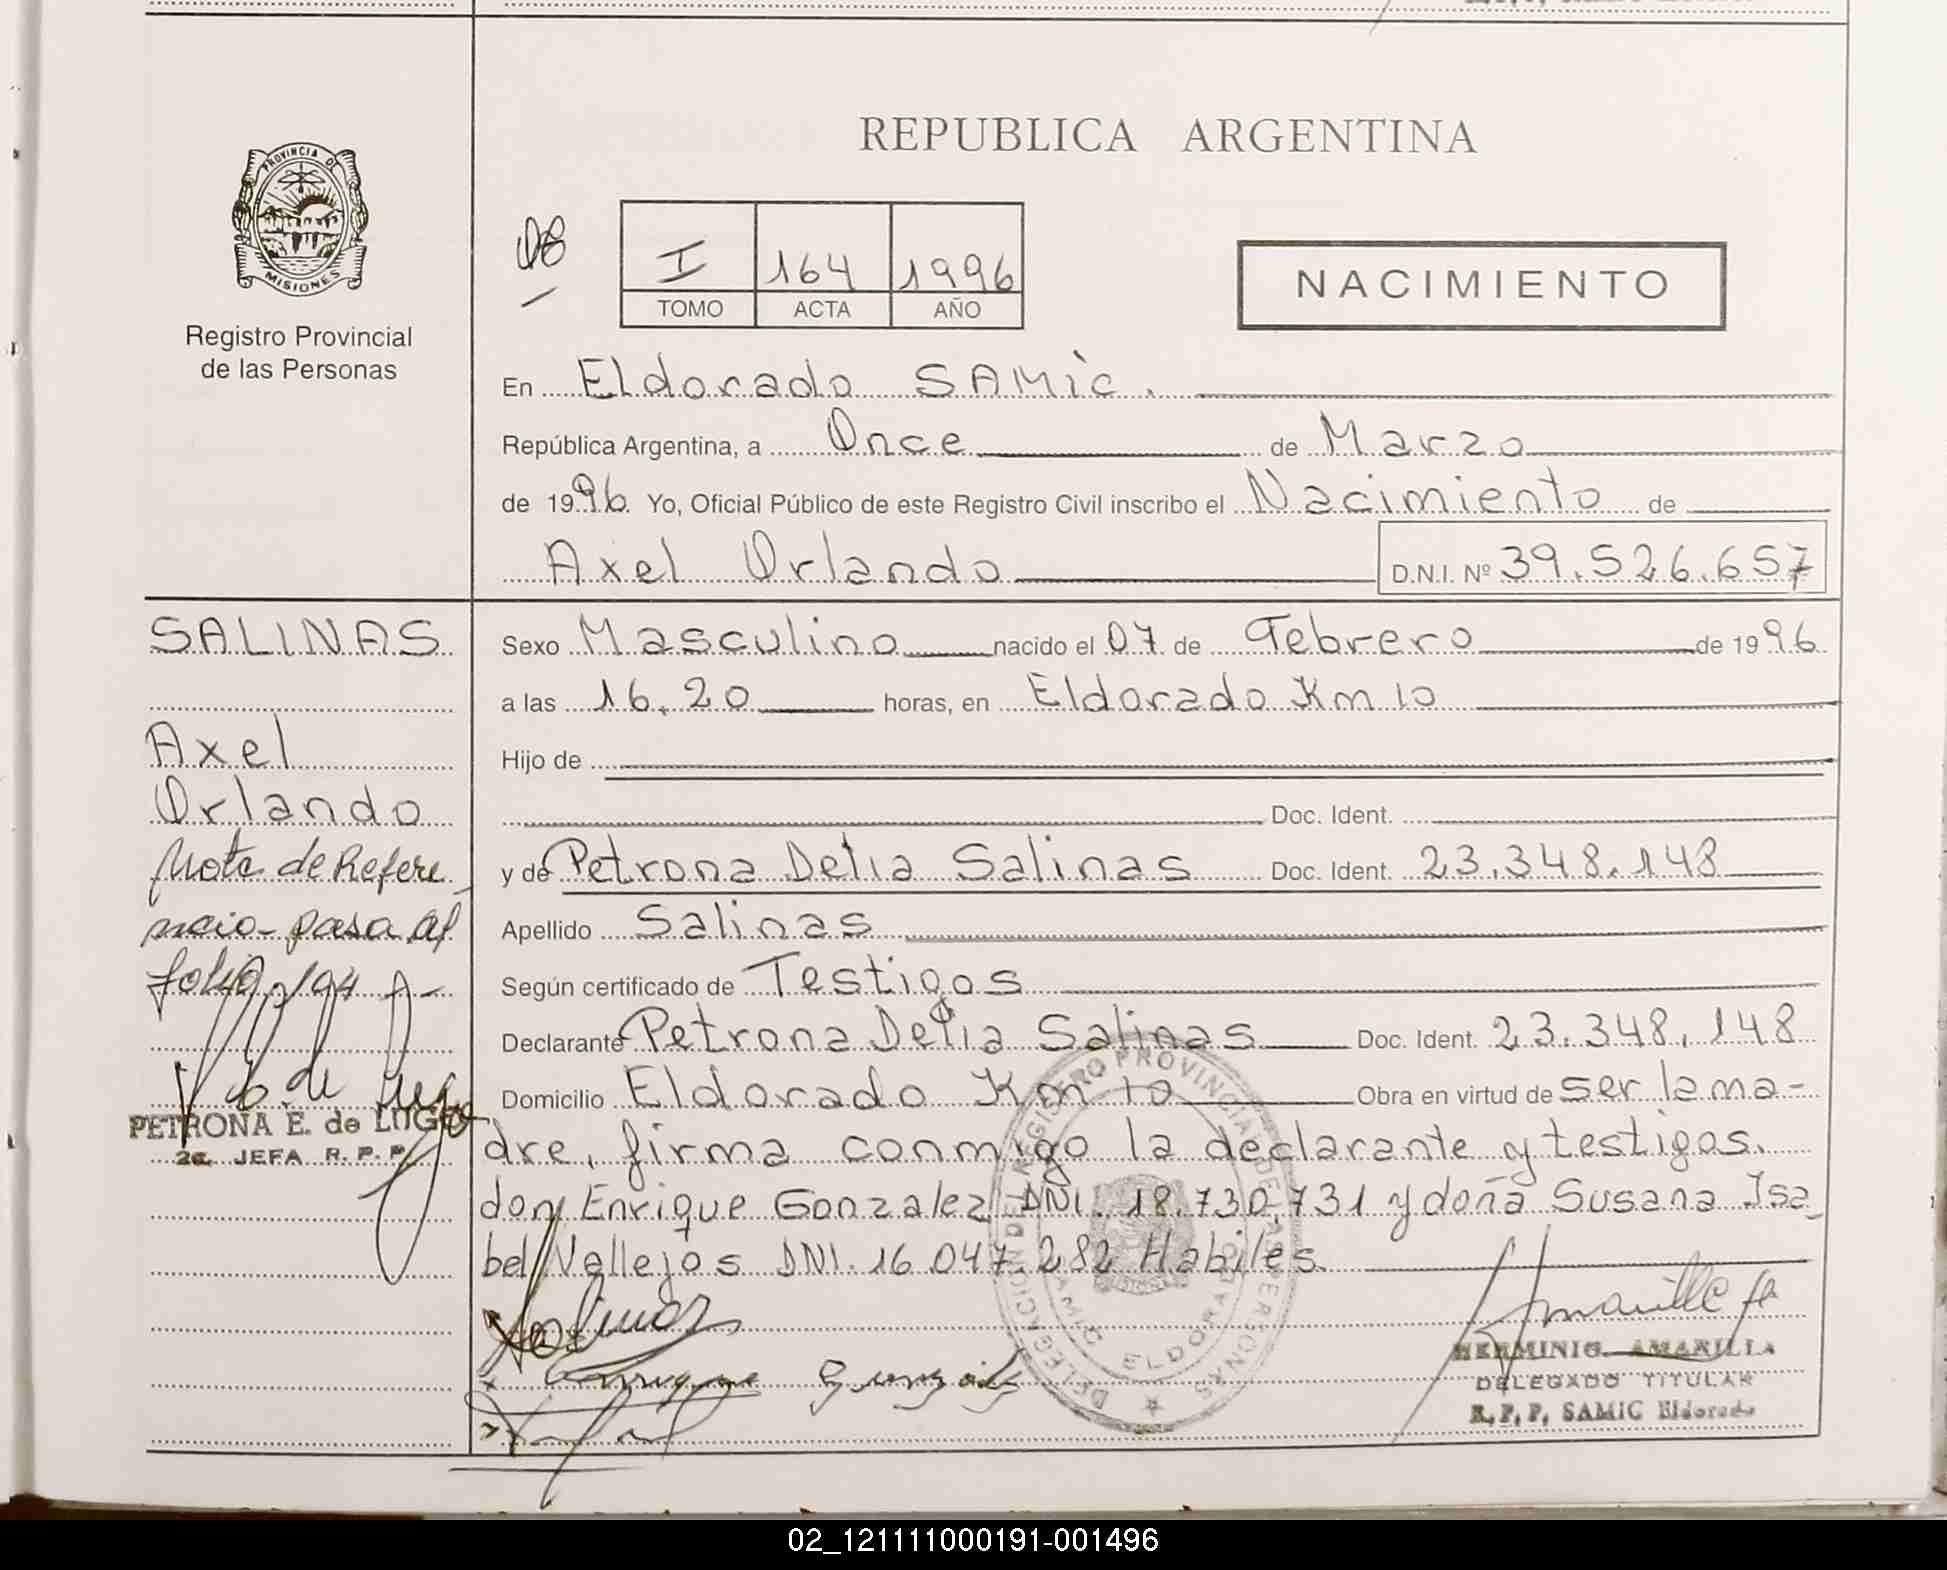 REPUBLICA ARGENTINA
PROVINCIA DE
MISIONES
Registro Provincial
de las Personas
08
I 164 1996
TOMO ACTA AÑO
NACIMIENTO
En Eldorado SAMic.
República Argentina, a Once de Marzo
de 1996 Yo, Oficial Público de este Registro Civil inscribo el Nacimiento de
Axel Orlando D.N.I. Nº 39.526.657
SALINAS
Axel
Orlando
Nota de Refere
ncia- pasa al
folio 194
PETRONA E. de LUGO
2a. JEFA R.P.P.
Sexo Masculino nacido el 07 de Febrero de 1996
a las 16.20 horas, en Eldorado Km 10
Hijo de
Doc. Ident.
y de Petrona Delia Salinas Doc. Ident. 23.348.148
Apellido Salinas
Según certificado de Testigos
Declarante Petrona Delia Salinas Doc. Ident. 23.348.148
Domicilio Eldorado Km 10 Obra en virtud de ser la ma-
dre, firma conmigo la declarante y testigos.
don Enrique Gonzalez DNI. 18.730.731 y doña Susana Isa
bel Vallejos DNI. 16.047.282 Habiles.
DELEGACION DEL REGISTRO PROVINCIAL DE LAS PERSONAS
SAMIC ELDORADO
Salinas
Enrique Gonzalez
HERMINIO AMARILLA
DELEGADO TITULAR
R.P.P. SAMIC Eldorado
02_121111000191-001496